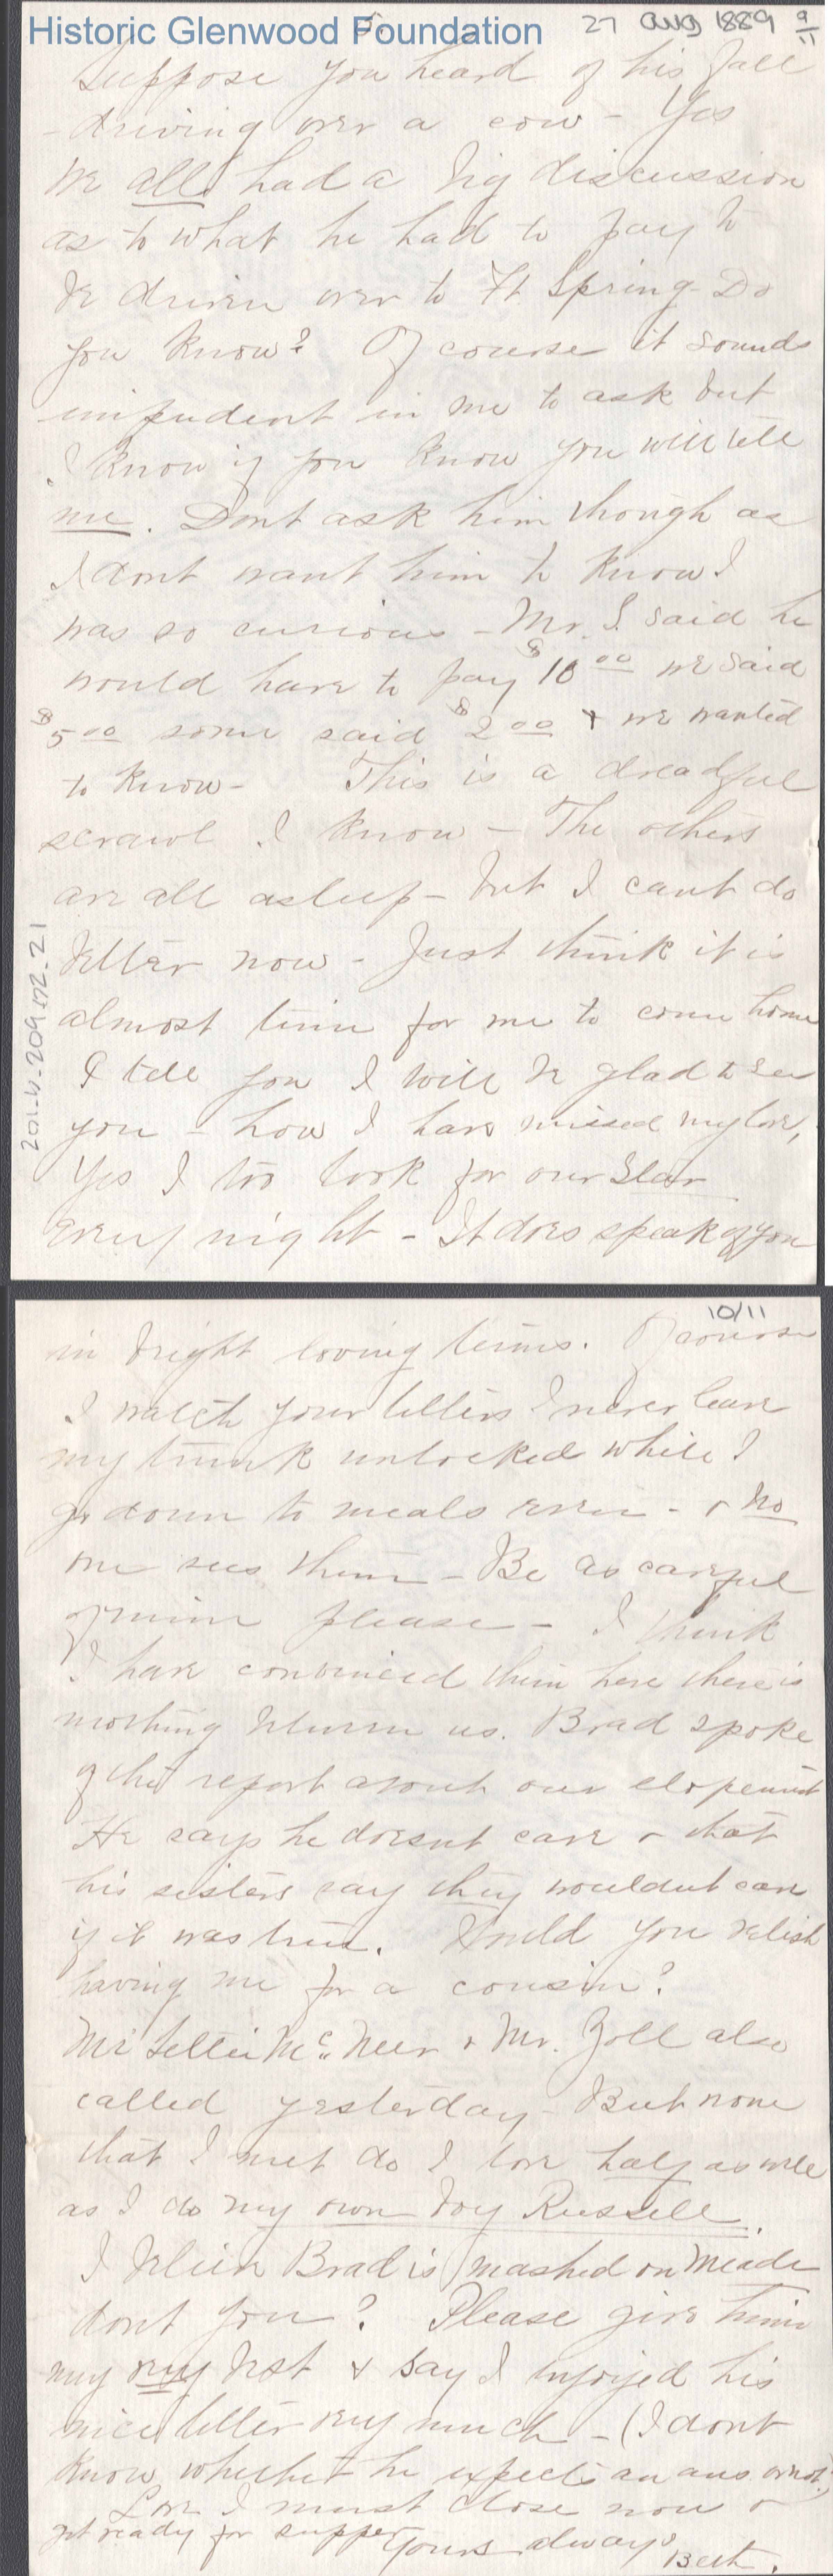 Historic Glenwood Foundation
27 AUG 1889 9/11
Suppose you heard of his fall
- driving over a cow - Yes
we all had a big discussion
as to what he had to pay to
be driven over to Ft Spring - Do
you know? Of course it sounds
impudent in me to ask but
I know if you know you will tell
me. Dont ask him though as
I dont want him to know I
was so curious - Mr. S. said he
would have to pay $10 00 we said
$5 00 some said $2 00 & we wanted
to know - This is a dreadful
scrawl I know - The others
are all asleep - but I cant do
better now - Just think it is
almost time for me to come home
I tell you I will be glad to see
you - how I have missed my love,
Yes I too look for our Star
every night - It does speak of you
201.4.209.172.21
10/11
in bright loving terms. Of course
I watch your letters I never leave
my trunk unlocked while I
go down to meals even - & no
one sees them - Be as careful
of mine please - I think
I have convinced them here there is
nothing between us. Brad spoke
of the report about our elopement
He says he doesnt care & that
his sisters say they wouldnt care
if it was true. Would you relish
having me for a cousin?
Mr McNeer & Mr. Zoll also
called yesterday - But none
that I met do I love half as well
as I do my own boy Russell.
I believe Brad is mashed on Meade
dont you? Please give him
my very best & say I enjoyed his
nice letter very much - (I dont
know whether he expects an ans or not.)
Love I must close now &
get ready for supper
Yours always
Bert.